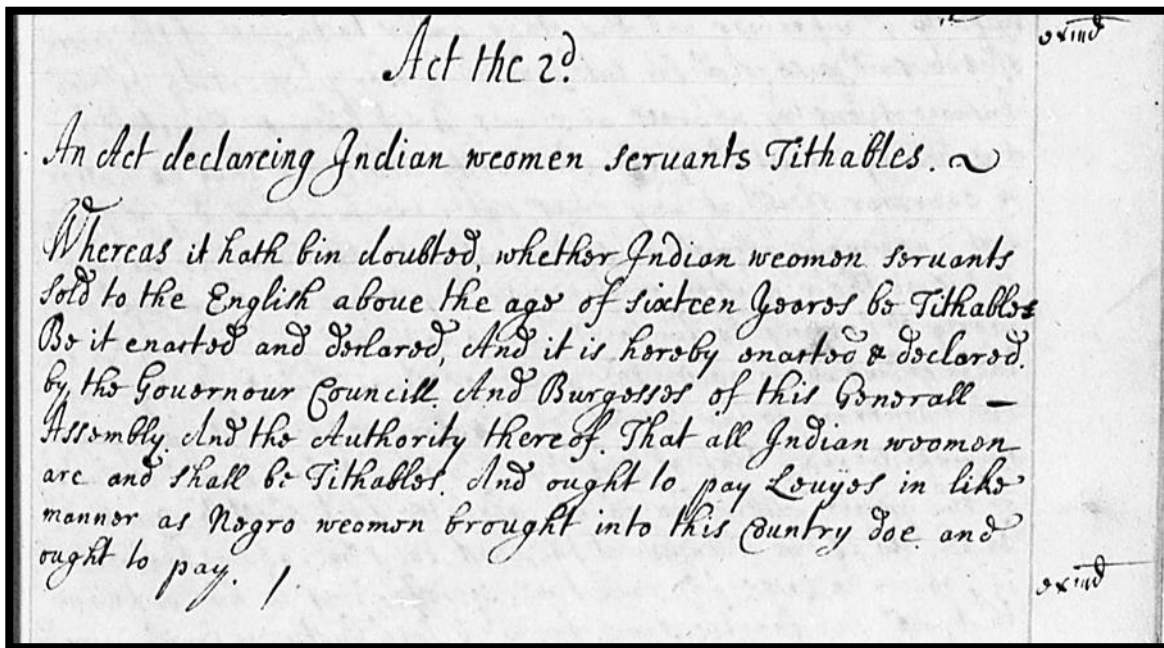 Act the 2d.
exind
An Act declareing Indian weomen servants Tithables.
Whereas it hath bin doubted, whether Indian weomen servants
sold to the English above the age of sixteen Yeares be Tithables
Be it enacted and declared, And it is hereby enacted & declared
by the Governour Councill And Burgesses of this Generall —
Assembly And the Authority thereof. That all Indian weomen
are and shall be Tithables. And ought to pay Levyes in like
manner as Negro weomen brought into this Country doe and
ought to pay. /
exind